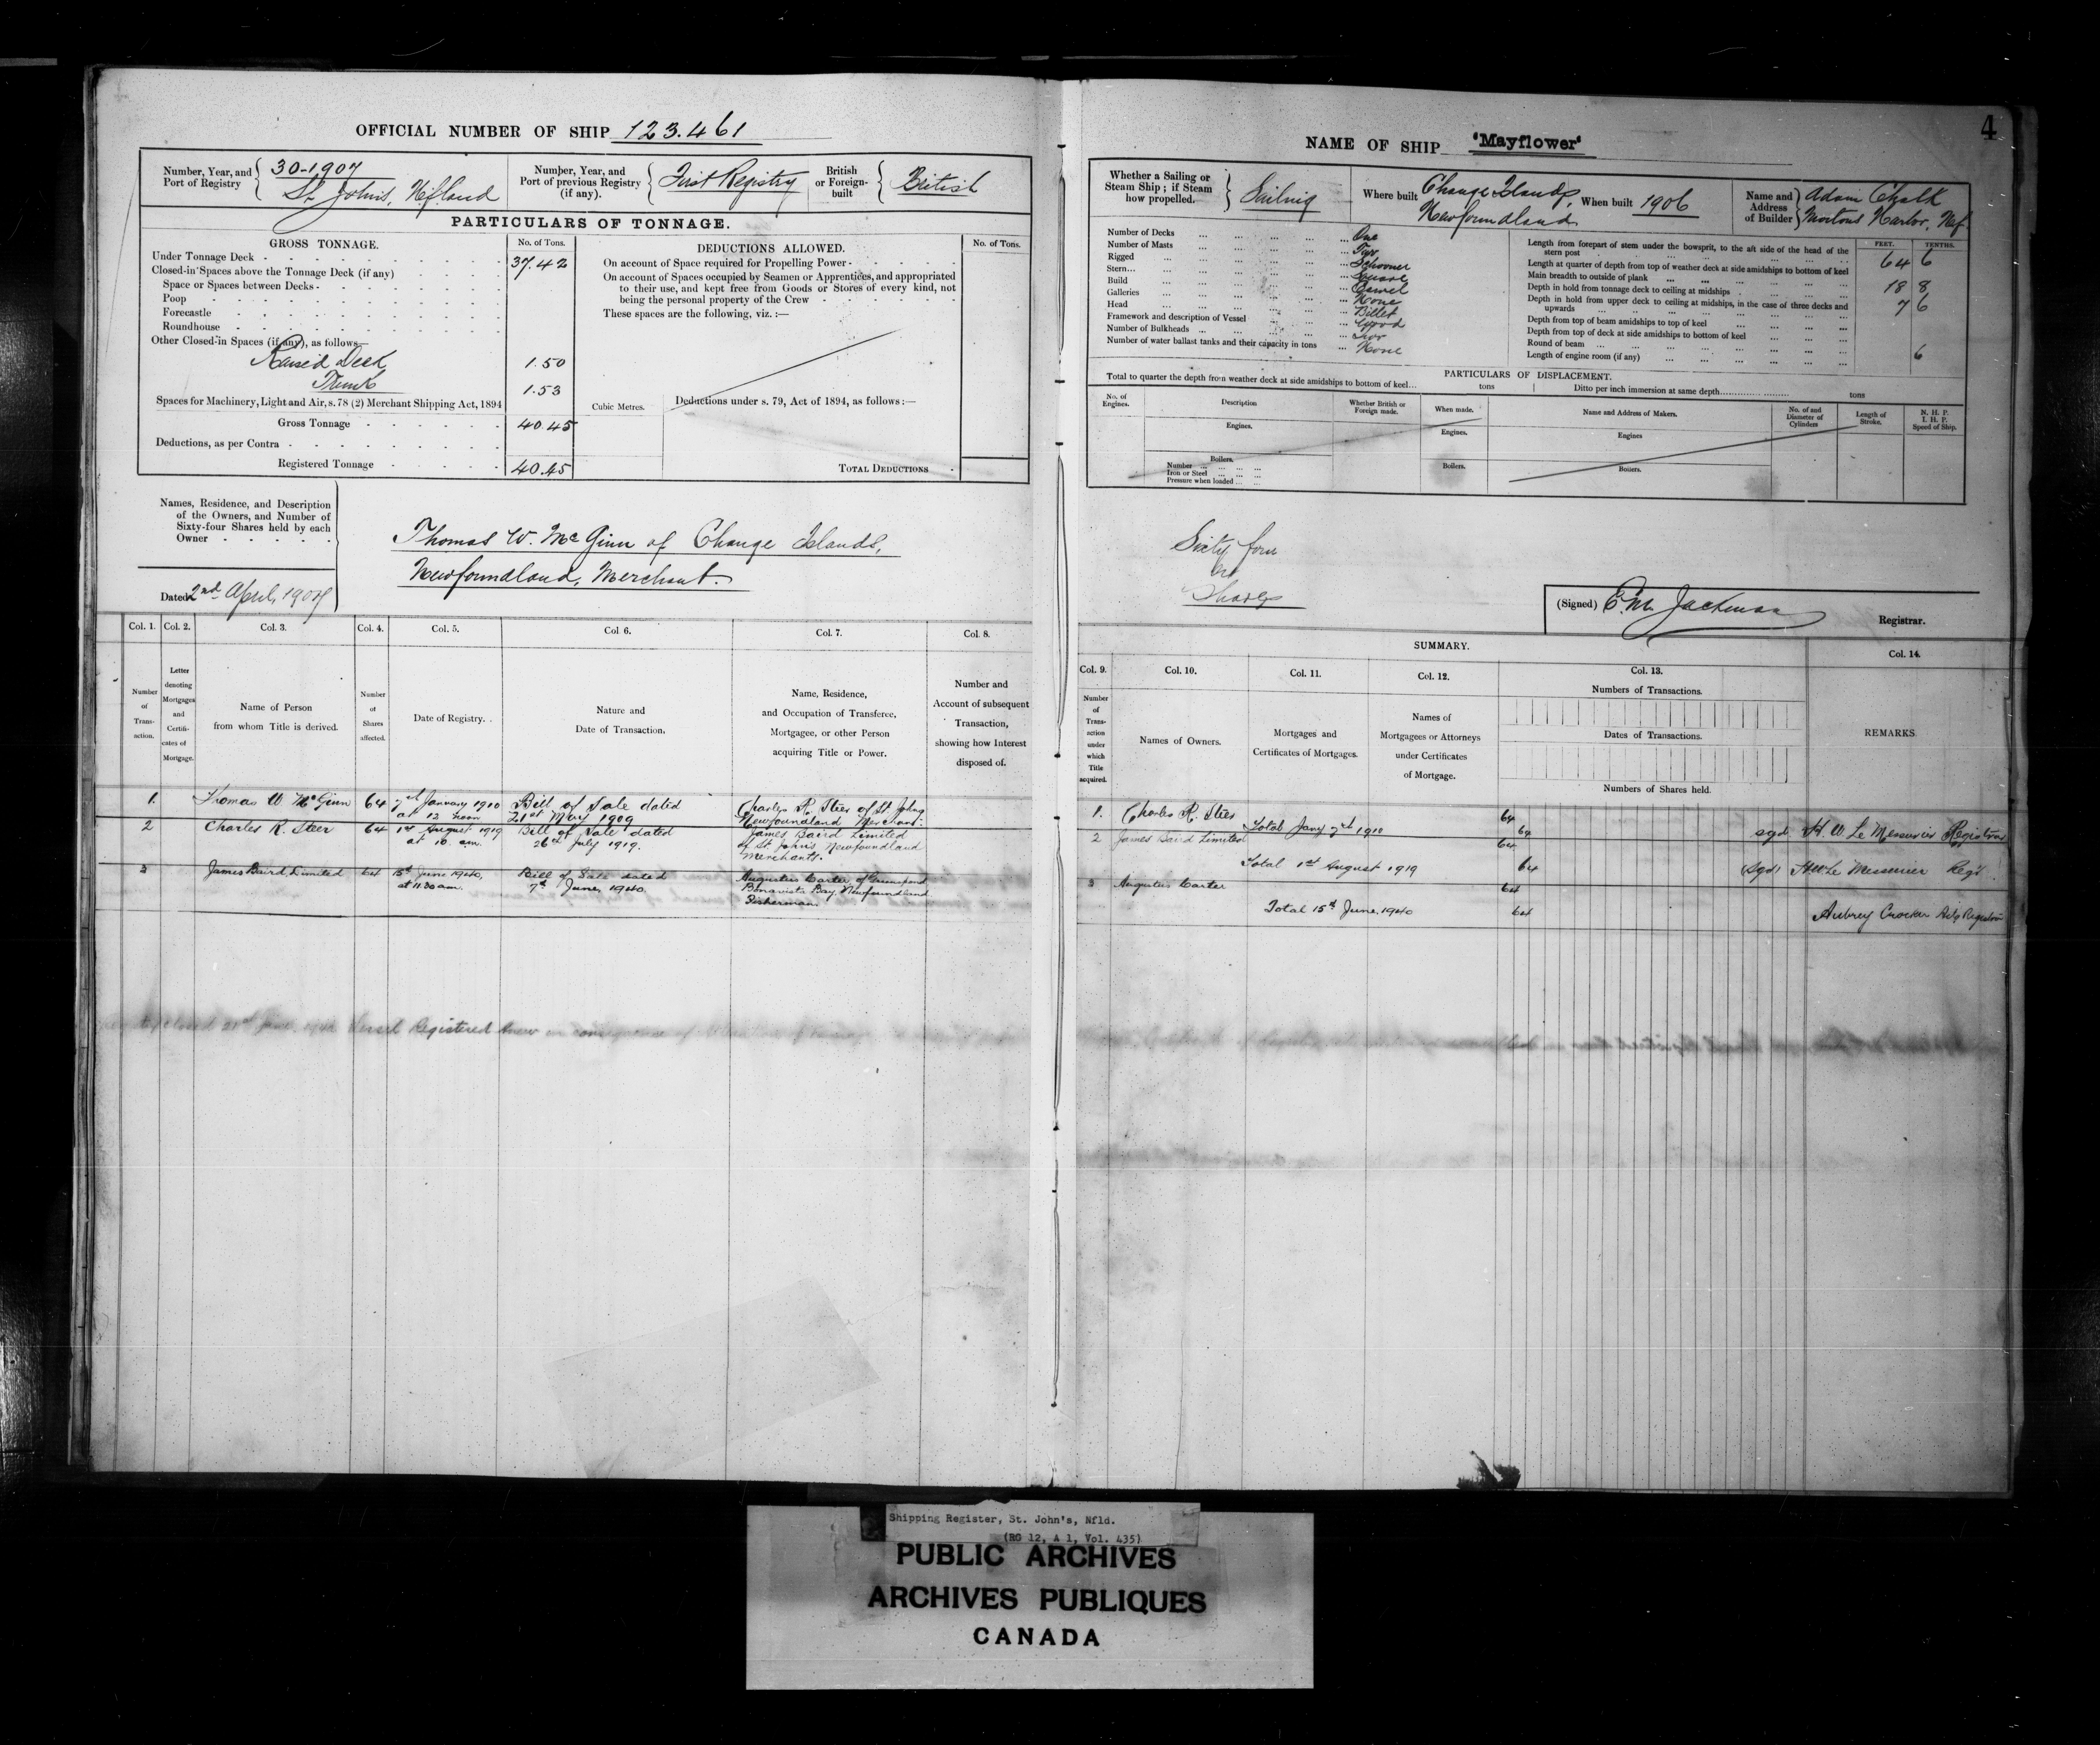 4
OFFICIAL NUMBER OF SHIP 123.461
Number, Year, and Port of Registry
30-1907
St. John's, Nfland
Number, Year, and Port of previous Registry (if any).
First Registry
British or Foreign-built
British
PARTICULARS OF TONNAGE.
GROSS TONNAGE.
No. of Tons.
DEDUCTIONS ALLOWED.
No. of Tons.
Under Tonnage Deck 37.42
Closed-in Spaces above the Tonnage Deck (if any)
Space or Spaces between Decks
Poop
Forecastle
Roundhouse
Other Closed-in Spaces (if any), as follows—
Raised Deck 1.50
Trunk 1.53
Spaces for Machinery, Light and Air, s. 78 (2) Merchant Shipping Act, 1894
Gross Tonnage 40.45
Deductions, as per Contra
Registered Tonnage 40.45
On account of Space required for Propelling Power
On account of Spaces occupied by Seamen or Apprentices, and appropriated
to their use, and kept free from Goods or Stores of every kind, not
being the personal property of the Crew
These spaces are the following, viz. :—
Cubic Metres.
Deductions under s. 79, Act of 1894, as follows :—
TOTAL DEDUCTIONS
Names, Residence, and Description
of the Owners, and Number of
Sixty-four Shares held by each
Owner
Thomas W. McGinn of Change Islands,
Newfoundland, Merchant.
Dated 2nd April, 1907
NAME OF SHIP 'Mayflower'
Whether a Sailing or Steam Ship; if Steam how propelled.
Sailing
Where built
Change Islands,
Newfoundland
When built 1906
Name and Address of Builder
Adam Chalk
Mortons Harbor, Nf.
Number of Decks One
Number of Masts Two
Rigged Schooner
Stern Square
Build Carvel
Galleries None
Head Billet
Framework and description of Vessel Wood
Number of Bulkheads
Number of water ballast tanks and their capacity in tons None
FEET. TENTHS.
Length from forepart of stem under the bowsprit, to the aft side of the head of the
stern post 64 6
Length at quarter of depth from top of weather deck at side amidships to bottom of keel
Main breadth to outside of plank 18 8
Depth in hold from tonnage deck to ceiling at midships 7 6
Depth in hold from upper deck to ceiling at midships, in the case of three decks and
upwards
Depth from top of beam amidships to top of keel
Depth from top of deck at side amidships to bottom of keel
Round of beam 6
Length of engine room (if any)
PARTICULARS OF DISPLACEMENT.
Total to quarter the depth from weather deck at side amidships to bottom of keel tons
Ditto per inch immersion at same depth tons
No. of Engines.
Description
Whether British or Foreign made.
When made.
Name and Address of Makers.
No. of and Diameter of Cylinders
Length of Stroke.
N. H. P.
I. H. P.
Speed of Ship.
Engines.
Engines.
Engines
Boilers.
Number
Iron or Steel
Pressure when loaded
Boilers.
Boilers.
Sixty four
Shares
(Signed) E. M. Jackman
Registrar.
Col. 1. Col. 2. Col. 3. Col. 4. Col. 5. Col. 6. Col. 7. Col. 8.
Number of Trans-action.
Letter denoting Mortgages and Certifi-cates of Mortgage.
Name of Person from whom Title is derived.
Number of Shares affected.
Date of Registry.
Nature and Date of Transaction.
Name, Residence, and Occupation of Transferee, Mortgagee, or other Person acquiring Title or Power.
Number and Account of subsequent Transaction, showing how Interest disposed of.
1. Thomas W McGinn 64 7th January 1910 at 12 noon Bill of Sale dated 21st May 1909 Charles R. Steer of St. Johns Newfoundland Merchant.
2 Charles R. Steer 64 1st August 1919 at 10 am. Bill of Sale dated 26th July 1919. James Baird Limited of St John's Newfoundland Merchants.
3 James Baird, Limited 64 15th June 1940, at 11.30 am. Bill of Sale dated 7th June, 1940. Augustus Carter of Greenspond Bonavista Bay, Newfoundland Fisherman.
closed 21st June, Vessel Registered Anew in consequence of
SUMMARY.
Col. 9. Col. 10. Col. 11. Col. 12. Col. 13. Col. 14.
Number of Trans-action under which Title acquired.
Names of Owners.
Mortgages and Certificates of Mortgages.
Names of Mortgagees or Attorneys under Certificates of Mortgage.
Numbers of Transactions.
Dates of Transactions.
Numbers of Shares held.
REMARKS
1. Charles R. Steer 64
Total Jany 7th 1910 64 sgd H. W. Le Messurier Registrar
2 James Baird Limited 64
Total 1st August 1919 64 (Sgd) H W Le Messurier Regr.
3 Augustus Carter 64
Total 15th June, 1940 64 Aubrey Crocker Registrar
Shipping Register, St. John's, Nfld.
(RG 12, A 1, Vol. 435)
PUBLIC ARCHIVES
ARCHIVES PUBLIQUES
CANADA